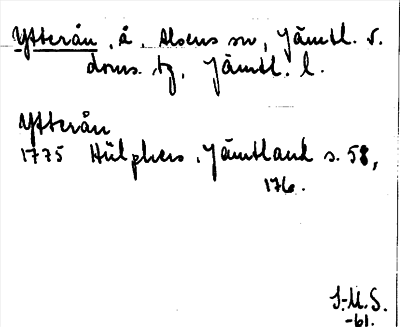 Ytterån, å, Alsens sn, Jämtl. v.
doms. tg, Jämtl. l.
Ytterån
1775 Hülphers, Jämtland s. 58,
176.
S-M.S.
-61.